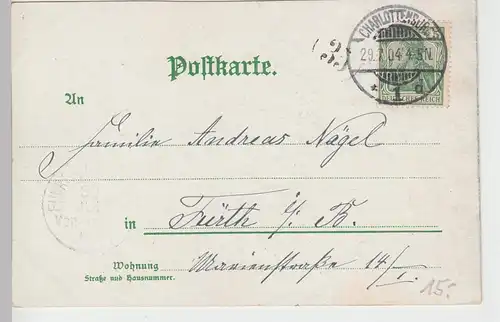 CHARLOTTENBURG
29.7.04 4-5N.
* 1 d
DEUTSCHES REICH
Postkarte.
An
Familie Andreas Nägel
in Fürth i/B.
Wohnung Marienstraße 14/I.
Straße und Hausnummer.
15.-